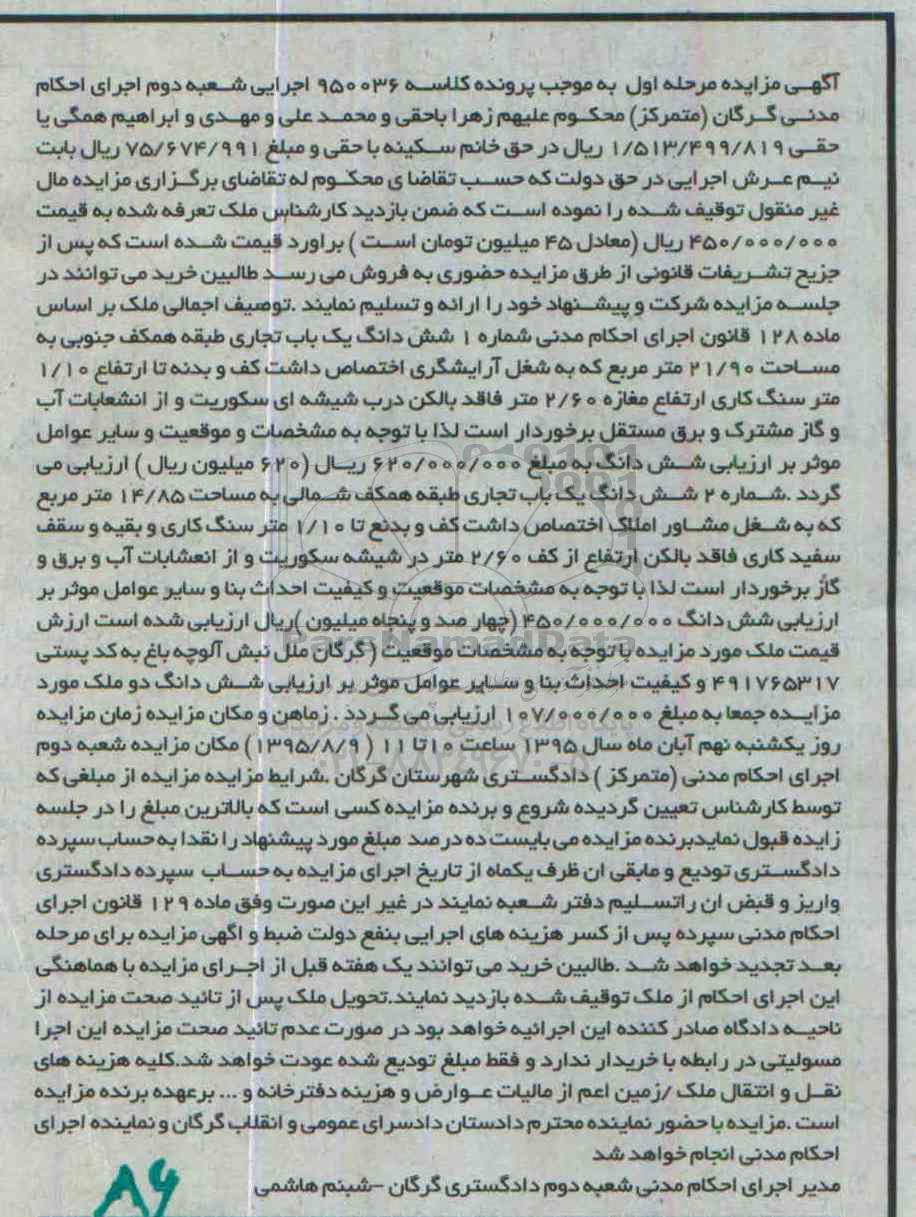 آگهی مزایده مرحله اول به موجب پرونده کلاسه ۹۵۰۰۳۶ اجرایی شعبه دوم اجرای احکام
مدنی گرگان (متمرکز) محکوم علیهم زهرا باحقی و محمد علی و مهدی و ابراهیم همگی یا
حقی ۱/۵۱۳/۴۹۹/۸۱۹ ریال در حق خانم سکینه با حقی و مبلغ ۷۵/۶۷۴/۹۹۱ ریال بابت
نیم عرش اجرایی در حق دولت که حسب تقاضا ی محکوم له تقاضای برگزاری مزایده مال
غیر منقول توقیف شده را نموده است که ضمن بازدید کارشناس ملک تعرفه شده به قیمت
۴۵۰/۰۰۰/۰۰۰ ریال (معادل ۴۵ میلیون تومان است ) براورد قیمت شده است که پس از
جزیح تشریفات قانونی از طرق مزایده حضوری به فروش می رسد طالبین خرید می توانند در
جلسه مزایده شرکت و پیشنهاد خود را ارائه و تسلیم نمایند .توصیف اجمالی ملک بر اساس
ماده ۱۲۸ قانون اجرای احکام مدنی شماره ۱ شش دانگ یک باب تجاری طبقه همکف جنوبی به
مساحت ۲۱/۹۰ متر مربع که به شغل آرایشگری اختصاص داشت کف و بدنه تا ارتفاع ۱/۱۰
متر سنگ کاری ارتفاع مغازه ۲/۶۰ متر فاقد بالکن درب شیشه ای سکوریت و از انشعابات آب
و گاز مشترک و برق مستقل برخوردار است لذا با توجه به مشخصات و موقعیت و سایر عوامل
موثر بر ارزیابی شش دانگ به مبلغ ۶۲۰/۰۰۰/۰۰۰ ریال (۶۲۰ میلیون ریال ) ارزیابی می
گردد .شماره ۲ شش دانگ یک باب تجاری طبقه همکف شمالی به مساحت ۱۴/۸۵ متر مربع
که به شغل مشاور املاک اختصاص داشت کف و بدنع تا ۱/۱۰ متر سنگ کاری و بقیه و سقف
سفید کاری فاقد بالکن ارتفاع از کف ۲/۶۰ متر در شیشه سکوریت و از انعشابات آب و برق و
گاز برخوردار است لذا با توجه به مشخصات موقعیت و کیفیت احداث بنا و سایر عوامل موثر بر
ارزیابی شش دانگ ۴۵۰/۰۰۰/۰۰۰ (چهار صد و پنجاه میلیون )ریال ارزیابی شده است ارزش
قیمت ملک مورد مزایده با توجه به مشخصات موقعیت ( گرگان ملل نبش آلوچه باغ به کد پستی
۴۹۱۷۶۵۳۱۷ و کیفیت احداث بنا و سایر عوامل موثر بر ارزیابی شش دانگ دو ملک مورد
مزایده جمعا به مبلغ ۱۰۷/۰۰۰/۰۰۰ ارزیابی می گردد . زماهن و مکان مزایده زمان مزایده
روز یکشنبه نهم آبان ماه سال ۱۳۹۵ ساعت ۱۰ تا ۱۱ ( ۱۳۹۵/۸/۹) مکان مزایده شعبه دوم
اجرای احکام مدنی (متمرکز ) دادگستری شهرستان گرگان .شرایط مزایده مزایده از مبلغی که
توسط کارشناس تعیین گردیده شروع و برنده مزایده کسی است که بالاترین مبلغ را در جلسه
زایده قبول نمایدبرنده مزایده می بایست ده درصد مبلغ مورد پیشنهاد را نقدا به حساب سپرده
دادگستری تودیع و مابقی ان ظرف یکماه از تاریخ اجرای مزایده به حساب سپرده دادگستری
واریز و قبض ان راتسلیم دفتر شعبه نمایند در غیر این صورت وفق ماده ۱۲۹ قانون اجرای
احکام مدنی سپرده پس از کسر هزینه های اجرایی بنفع دولت ضبط و اگهی مزایده برای مرحله
بعد تجدید خواهد شد .طالبین خرید می توانند یک هفته قبل از اجرای مزایده با هماهنگی
این اجرای احکام از ملک توقیف شده بازدید نمایند.تحویل ملک پس از تائید صحت مزایده از
ناحیه دادگاه صادر کننده این اجرائیه خواهد بود در صورت عدم تائید صحت مزایده این اجرا
مسولیتی در رابطه با خریدار ندارد و فقط مبلغ تودیع شده عودت خواهد شد.کلیه هزینه های
نقل و انتقال ملک /زمین اعم از مالیات عوارض و هزینه دفترخانه و ... برعهده برنده مزایده
است .مزایده باحضور نماینده محترم دادستان دادسرای عمومی و انقلاب گرگان و نماینده اجرای
احکام مدنی انجام خواهد شد
مدیر اجرای احکام مدنی شعبه دوم دادگستری گرگان –شبنم هاشمی
۸۶
ParsNamadData